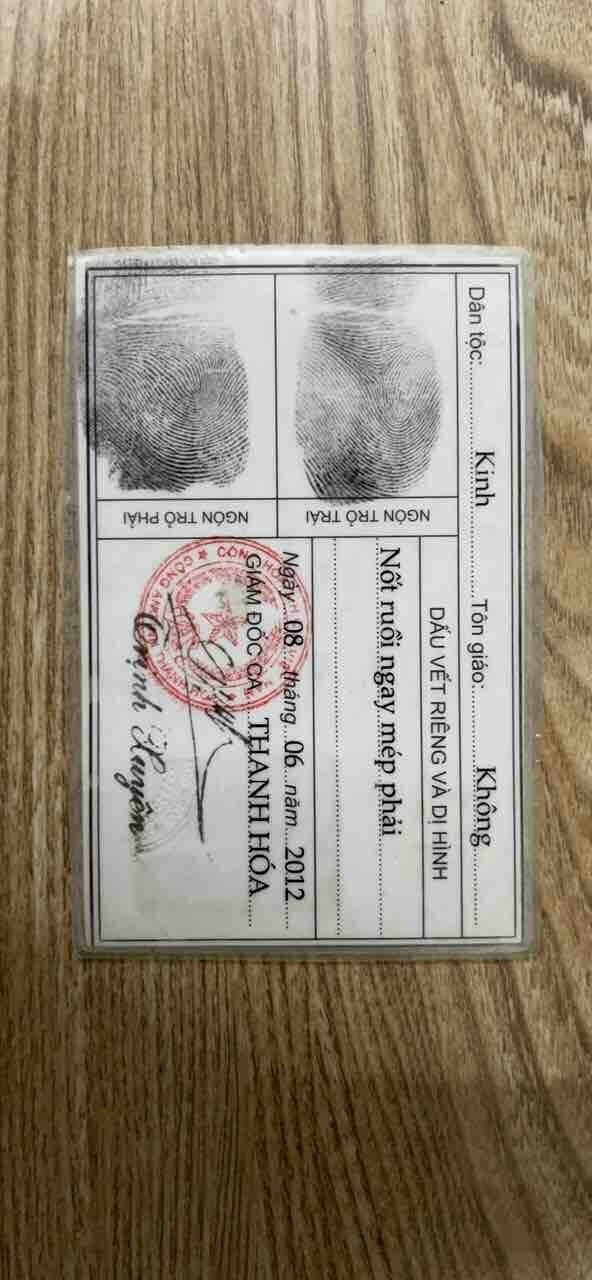 Dân tộc:........Kinh........Tôn giáo:........Không........
NGÓN TRỎ TRÁI
NGÓN TRỎ PHẢI
DẤU VẾT RIÊNG VÀ DỊ HÌNH
Nốt ruồi ngay mép phải
Ngày...08...tháng...06...năm...2012...
GIÁM ĐỐC CA...THANH HÓA
Trịnh Xuyên